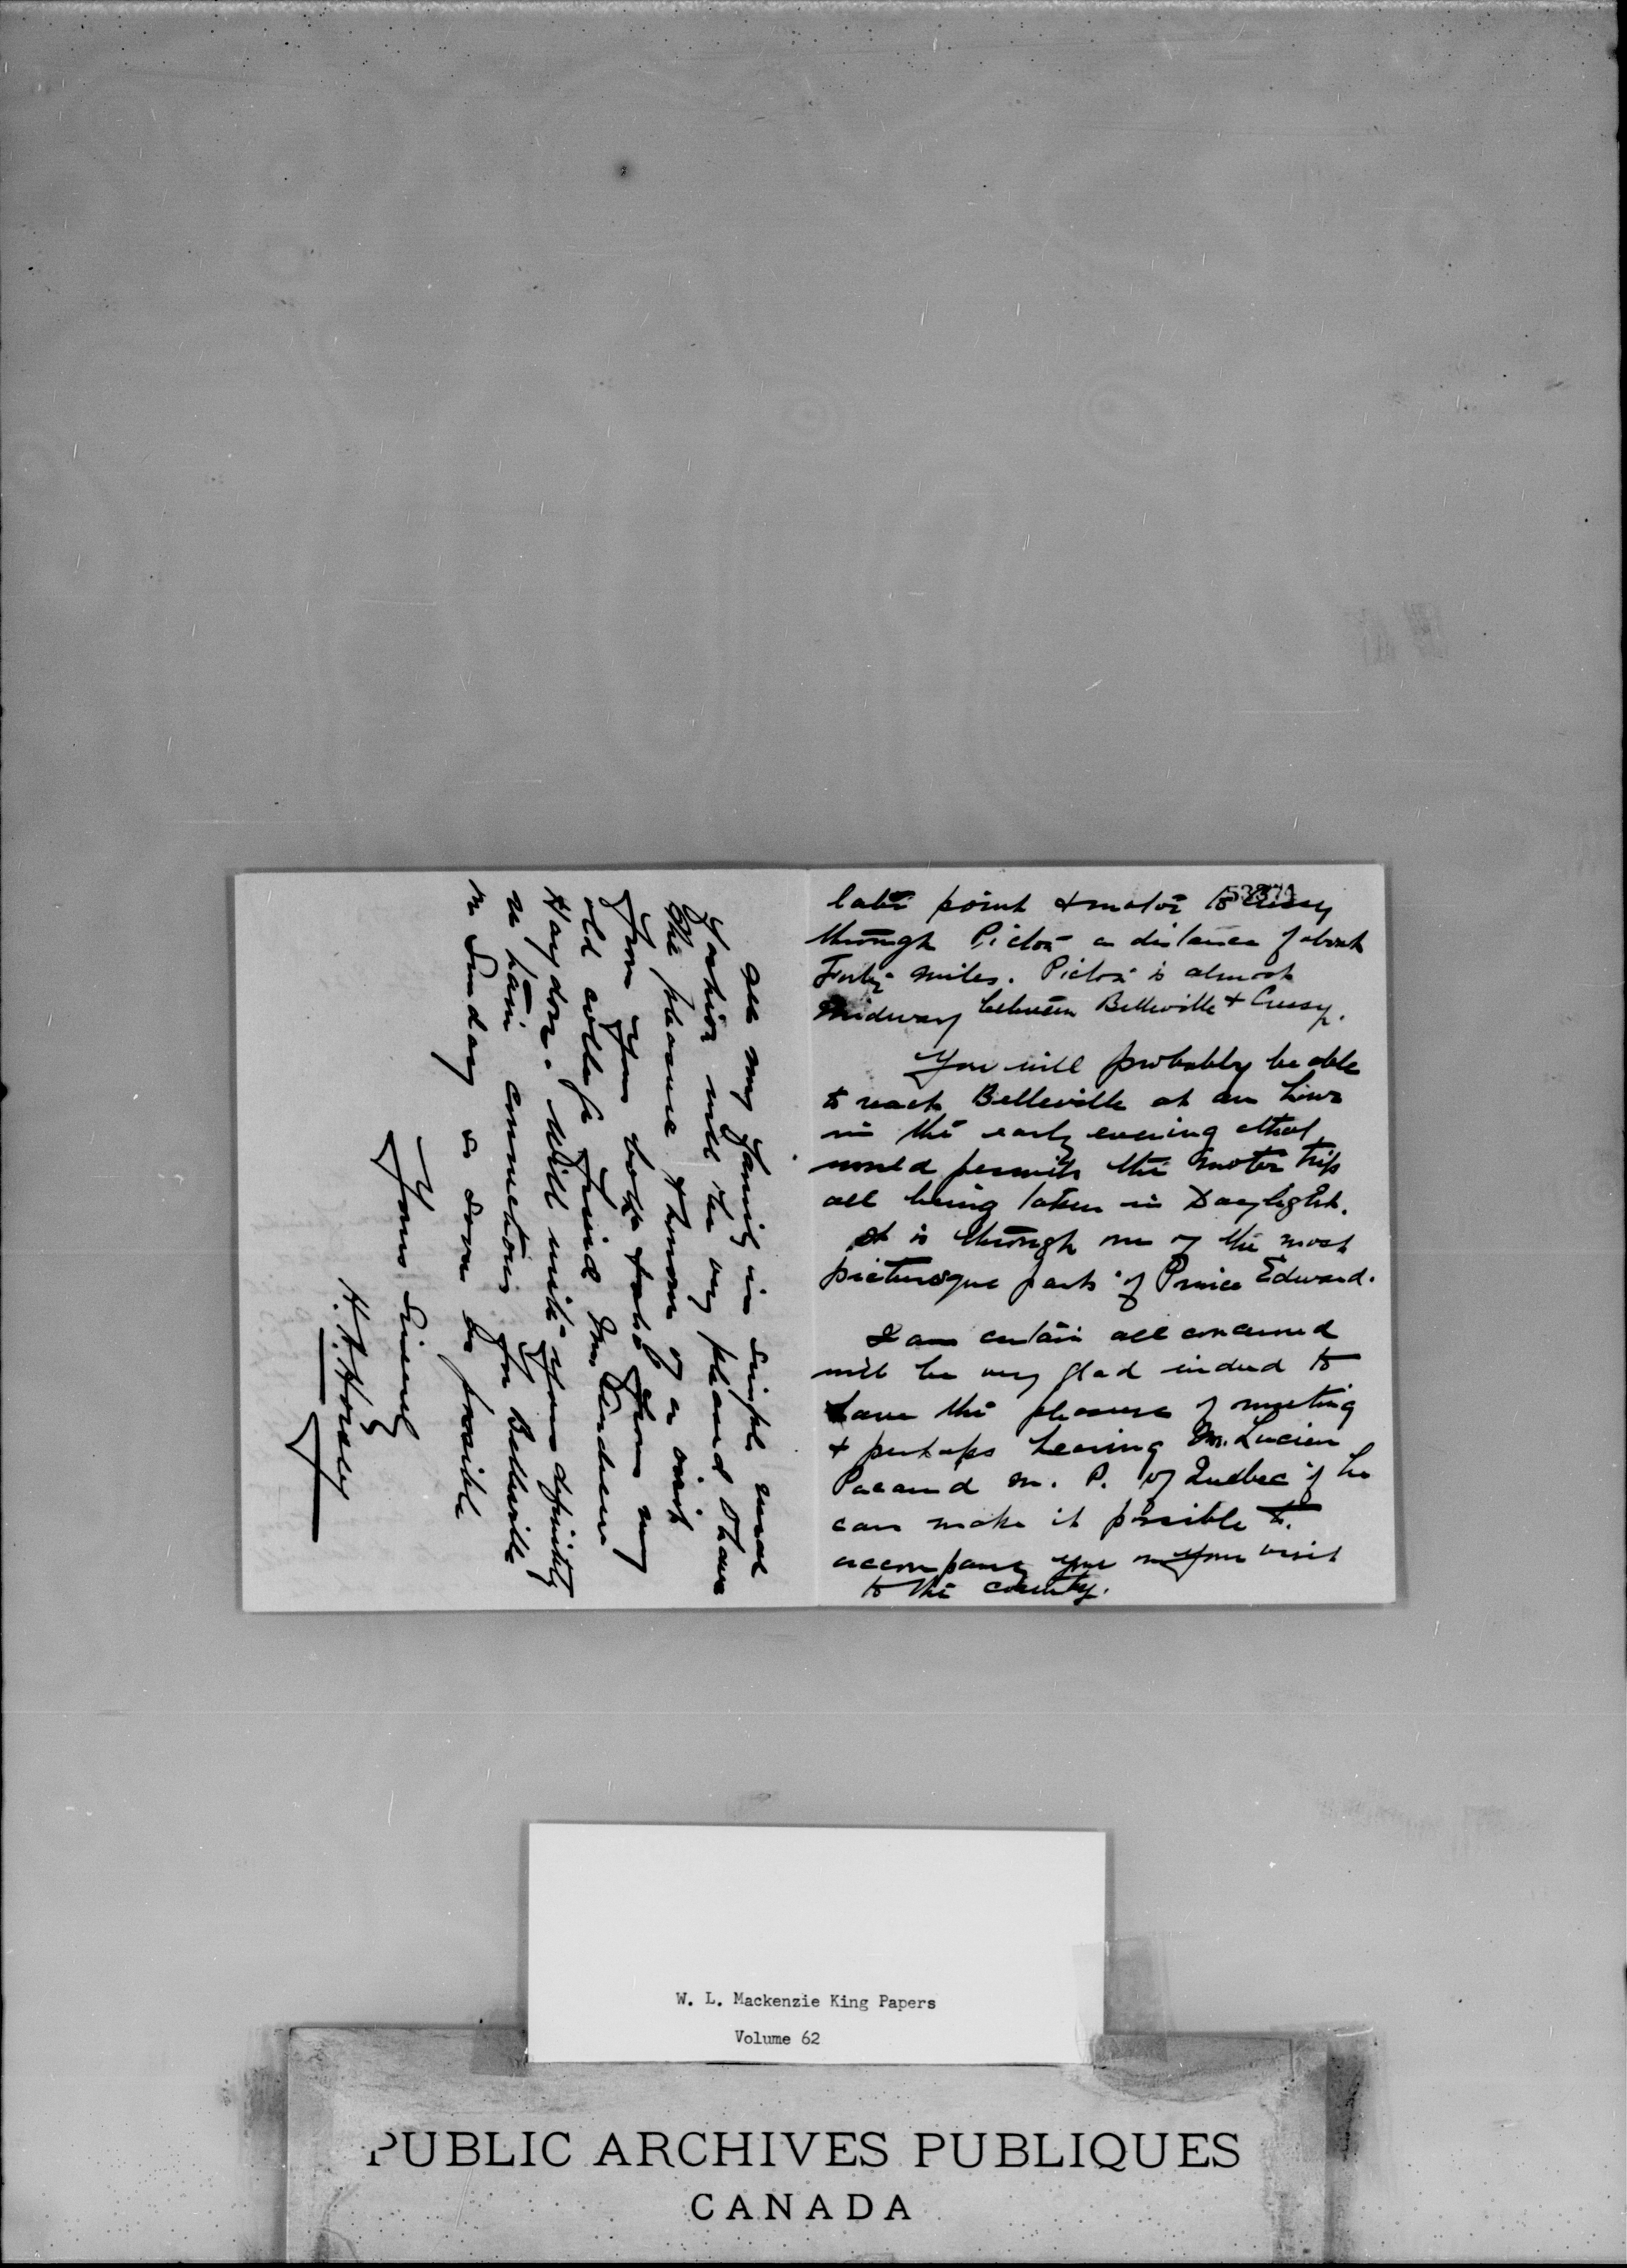 53871
later point & motor to Cressy
through Picton a distance of about
Forty miles. Picton is almost
Midway between Belleville & Cressy.
You will probably be able
to reach Belleville at an hour
in the early evening that
would permit the motor trip
all being taken in Daylight.
It is through one of the most
picturesque parts of Prince Edward.
I am certain all concerned
will be very glad indeed to
have the pleasure of meeting
& perhaps hearing Mr. Lucien
Pacaud M. P. of Quebec if he
can make it possible to
accompany you on your visit
to the county.
All my family in simple rural
fashion will be very pleased to have
the pleasure & honor of a visit
from you both & also from my
old college friend Mr. Andrew
Haydon. Will write you definitely
re train connections for Belleville
on Sunday as soon as possible
Yours Sincerely
H. H. Horsey
W. L. Mackenzie King Papers
Volume 62
PUBLIC ARCHIVES PUBLIQUES
CANADA